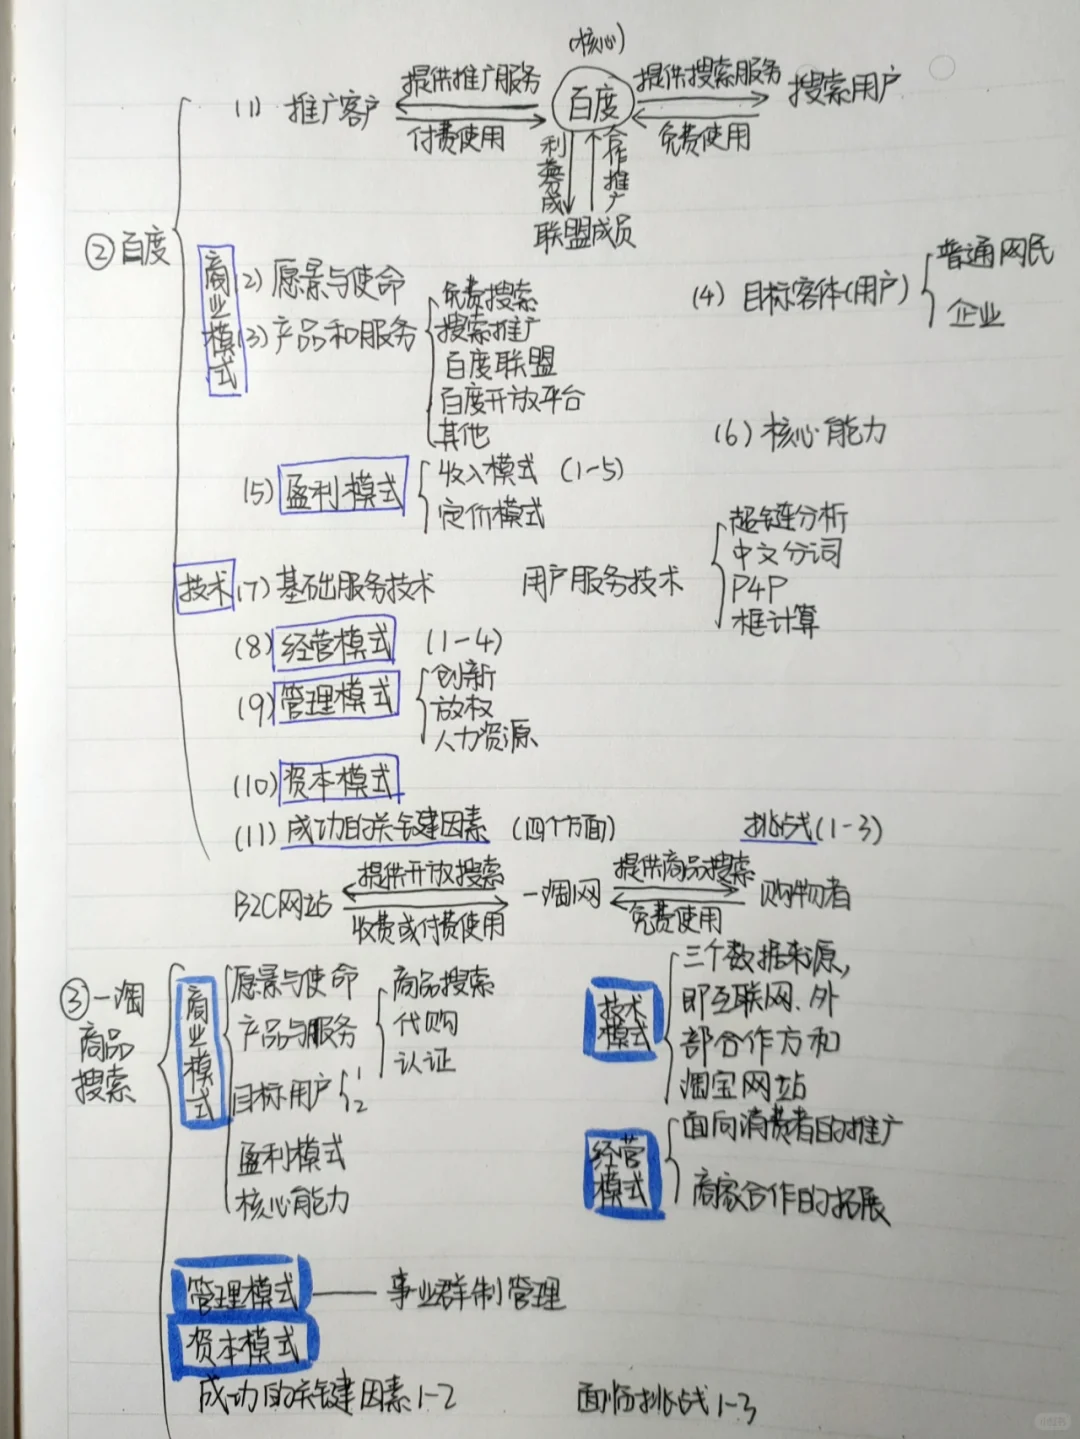 (核心)
提供推广服务
提供搜索服务
(1) 推广客户
百度
搜索用户
付费使用
免费使用
利益分成
合作推广
联盟成员
②百度
商业模式
(2) 愿景与使命
(3) 产品和服务
免费搜索
搜索推广
百度联盟
百度开放平台
其他
(4) 目标客体(用户)
普通网民
企业
(5) 盈利模式
收入模式 (1-5)
定价模式
(6) 核心能力
技术
(7) 基础服务技术
用户服务技术
超链分析
中文分词
P4P
框计算
(8) 经营模式 (1-4)
(9) 管理模式
创新
放权
人力资源
(10) 资本模式
(11) 成功的关键因素 (四个方面)
挑战(1-3)
提供开放搜索
提供商品搜索
B2C网站
一淘网
购物者
收费或付费使用
免费使用
③一淘
商品
搜索
商业模式
愿景与使命
产品与服务
商品搜索
代购
认证
目标用户
1
2
盈利模式
核心能力
技术
模式
三个数据来源,
即互联网、外
部合作方和
淘宝网站
经营
模式
面向消费者的推广
商家合作的拓展
管理模式
事业群制管理
资本模式
成功的关键因素1-2
面临挑战1-3
小红书